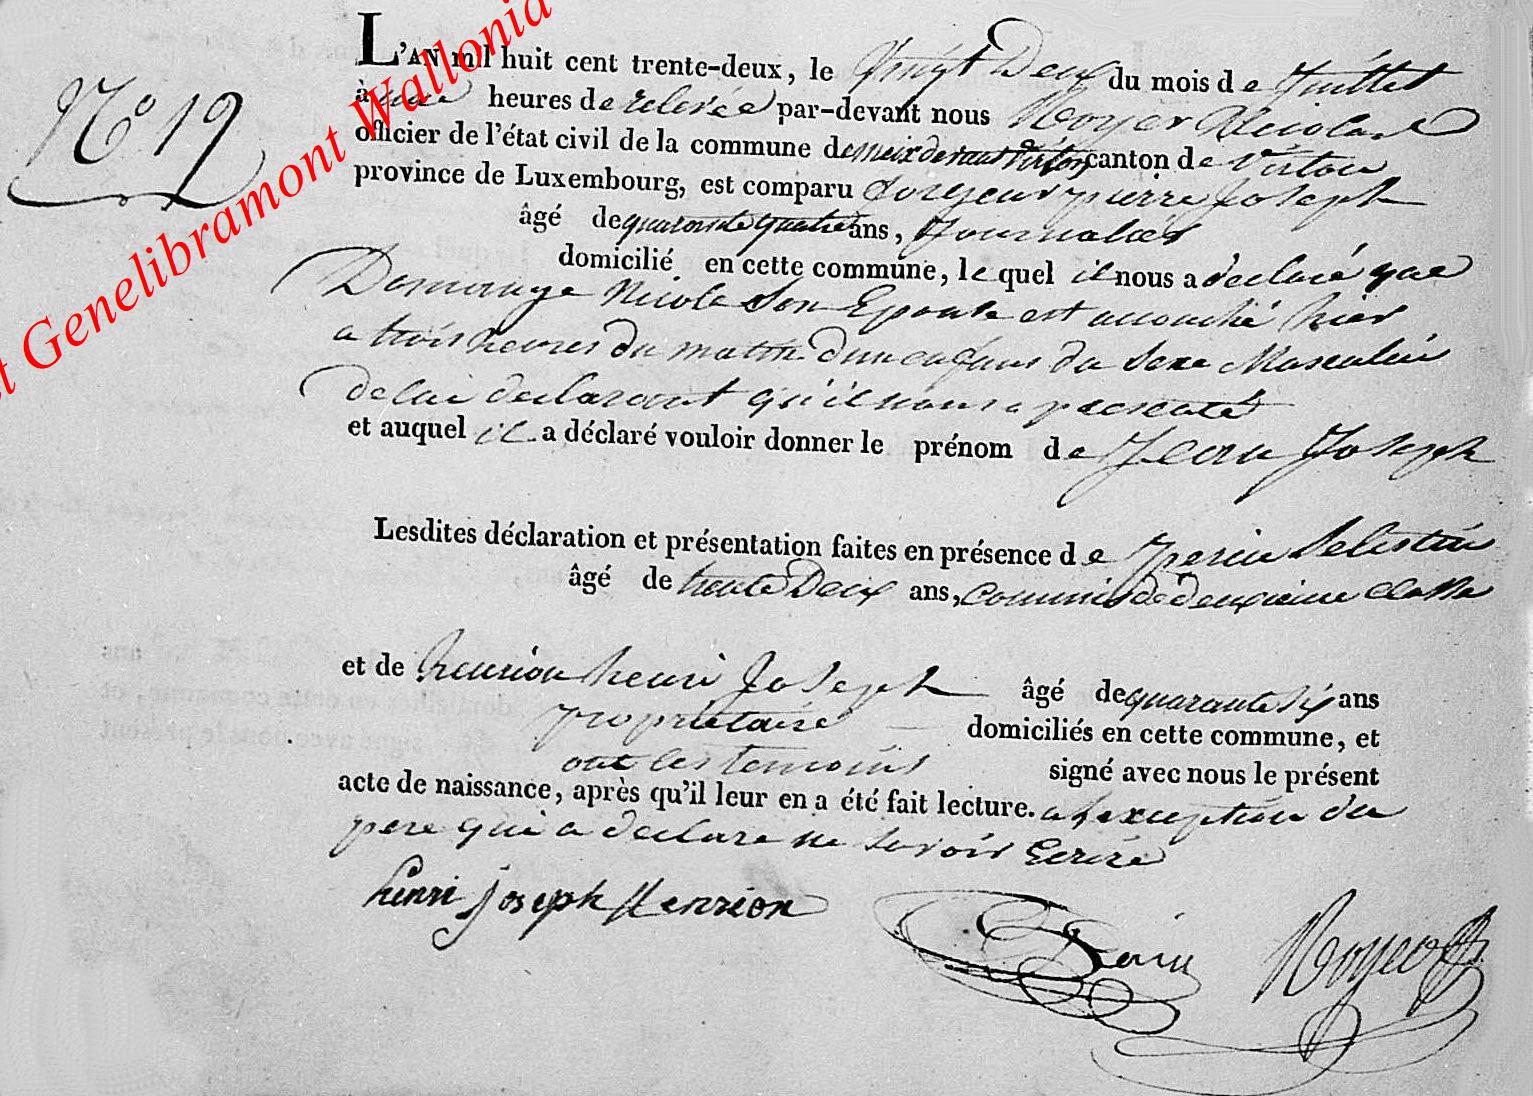 L'AN mil huit cent trente-deux, le Vingt Deux du mois de Juillet
N° 19
à une heures de relevée par-devant nous Noyer Nicolas
officier de l'état civil de la commune de meix devant virton canton de Virton
province de Luxembourg, est comparu pierre Joseph
âgé de quarante quatre ans, Journalier
domicilié en cette commune, le quel il nous a declaré que
Domange Nicole Son Epouse est accouché hier
a trois heures du matin d'un enfans du Sexe Masculin
de lui declarant qu'il nous a presenté
et auquel il a déclaré vouloir donner le prénom de Jean Joseph
Lesdites déclaration et présentation faites en présence de perin Selestin
âgé de trente Deux ans, commis de deuxieme classe
et de henrion henri Joseph âgé de quarante six ans
propriétaire domiciliés en cette commune, et
ont les temoins signé avec nous le présent
acte de naissance, après qu'il leur en a été fait lecture. a l'exception du
pere qui a declare ne savoir Ecrire
henri joseph Henrion Perin Noyer
Genelibramont Wallonia